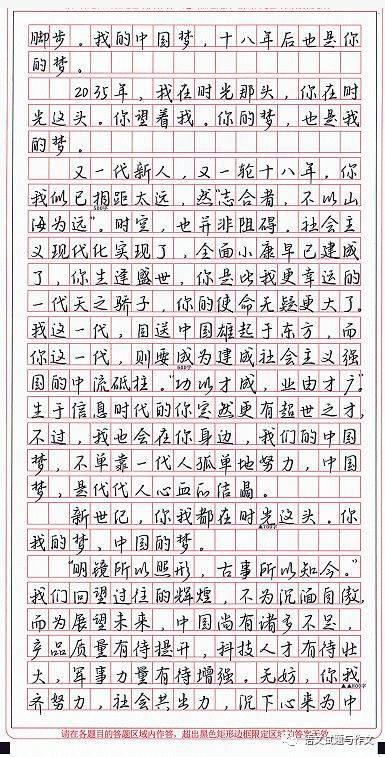 脚步。我的中国梦，十八年后也是你
的梦。
2035年，我在时光那头，你在时
光这头。你望着我。你的梦，也是我
的梦。
又一代新人，又一轮十八年，你
我似已相距太远，然“志合者，不以山
海为远”。时空，也并非阻碍。社会主
义现代化实现了，全面小康早已建成
了，你生逢盛世，你是比我更幸运的
一代天之骄子，你的使命无疑更大了。
我这一代，目送中国雄起于东方，而
你这一代，则要成为建成社会主义强
国的中流砥柱。“功以才成，业由才广”。
生于信息时代的你定然更有超世之才，
不过，我也会在你身边，我们的中国
梦，不单靠一代人孤单地努力，中国
梦，是代代人心血的结晶。
新世纪，你我都在时光这头。你
▲700字
我的梦、中国的梦。
“明镜所以照形，古事所以知今。”
我们回望过往的辉煌，不为沉湎自傲，
而为展望未来，中国尚有诸多不足，
产品质量有待提升，科技人才有待壮
大，军事力量有待增强。无妨，你我
▲▲800字
齐努力，社会共出力，沉下心来为中
请在各题目的答题区域内作答，超出黑色矩形边框限定区域的答案无效
语文试题与作文